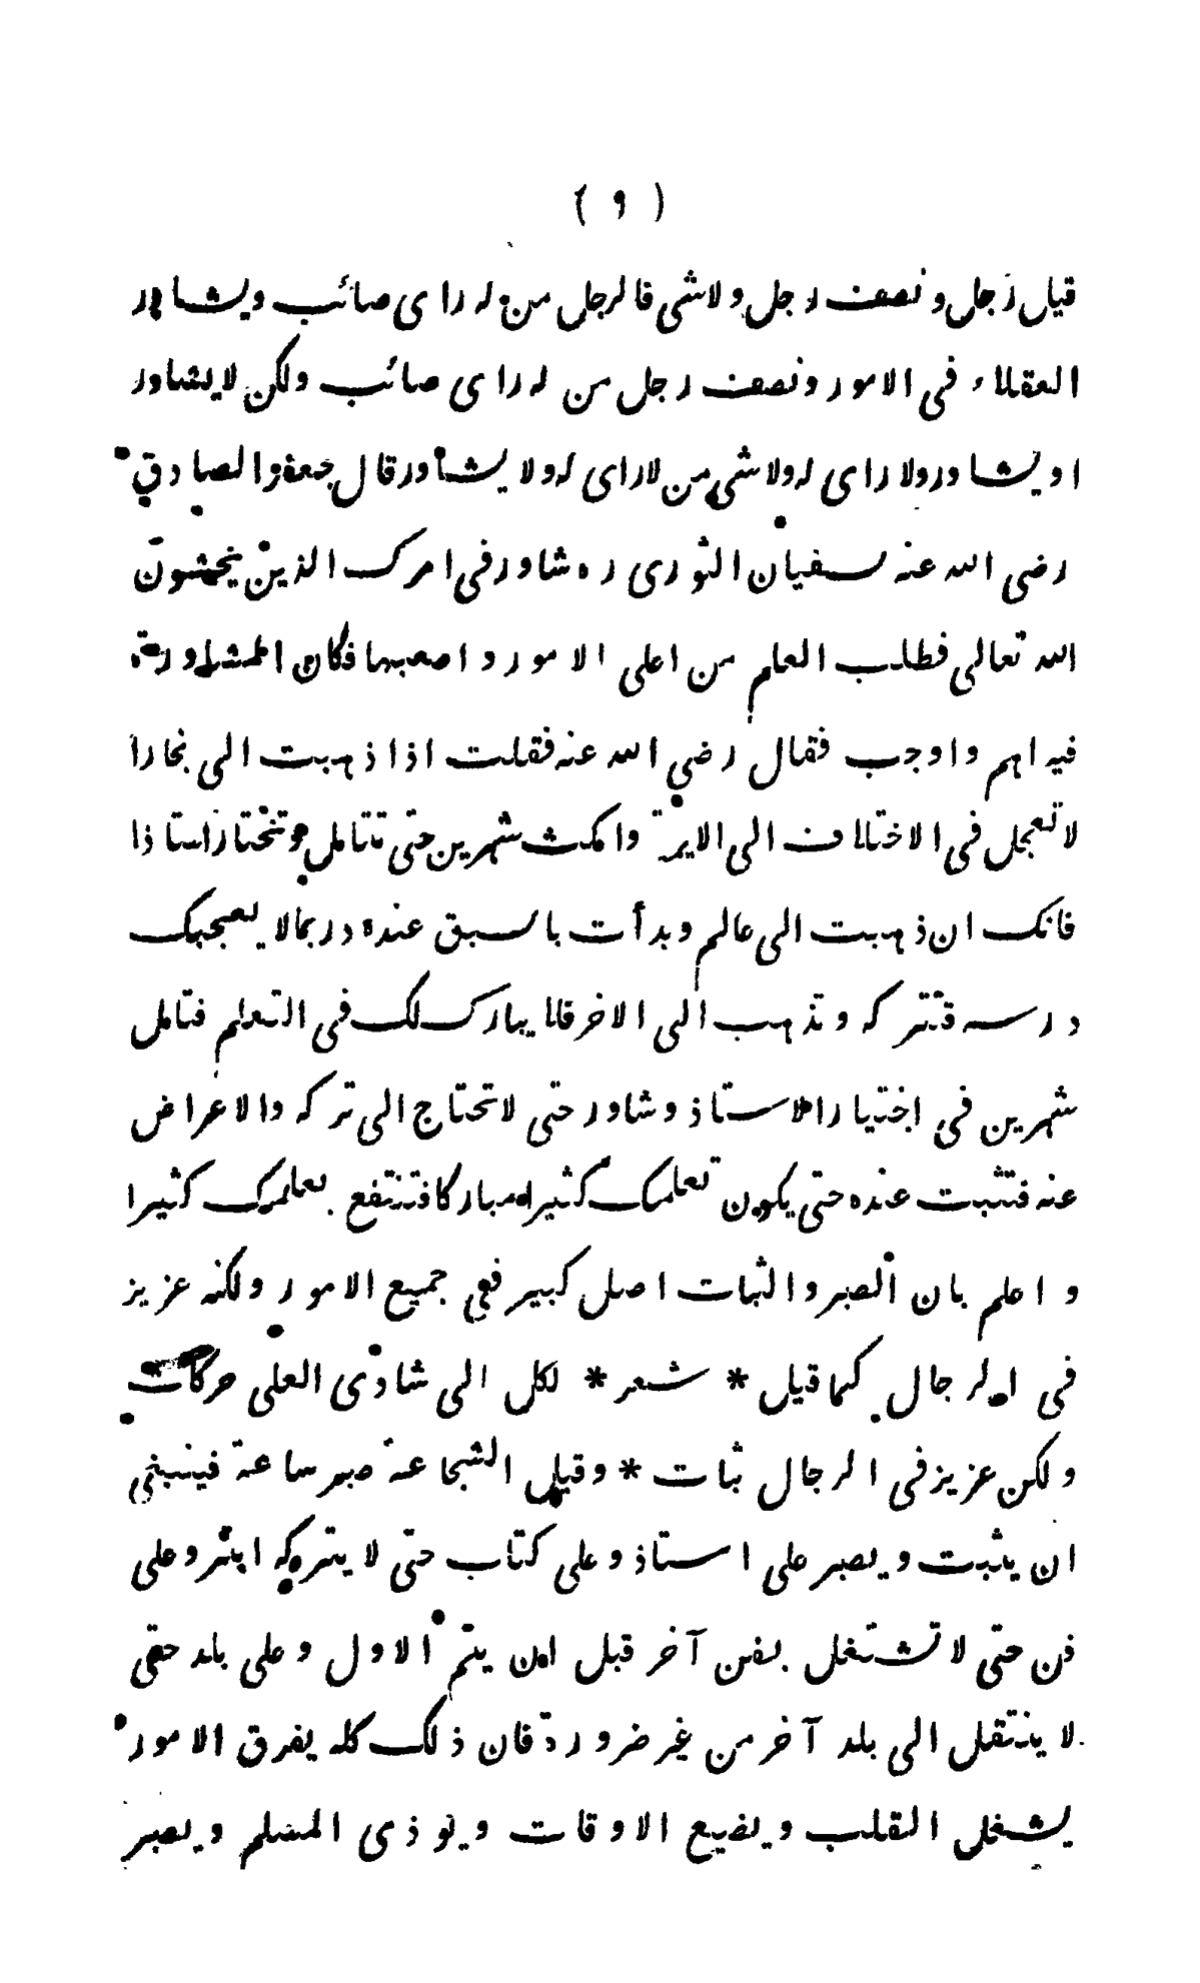 ( ٩ )
قيل رجل ونصف رجل ولاشى فالرجل من له راى صائب ويشاور
العقلاء فى الامور ونصف رجل من له راى صائب ولكن لايشاور
اويشاور ولا راى له ولاشى من لاراى له ولا يشاور قال جعفر الصادق
رضى الله عنه لسفيان الثورى ره شاور فى امرك الذين يخشون
الله تعالى فطلب العلم من اعلى الامور واصعبها فكان المشاورة
فيه اهم واوجب فقال رضى الله عنه فقلت اذا ذهبت الى بخارا
لا تعجل فى الاختلاف الى الايمة وامكث شهرين حتى تتامل وتختار استاذا
فانك ان ذهبت الى عالم وبدأت بالسبق عنده ربما لا يعجبك
درسه فتتركه وتذهب الى الاخر فلا يبارك لك فى التعلم فتامل
شهرين فى اختيار الاستاذ وشاور حتى لاتحتاج الى تركه والاعراض
عنه فتثبت عنده حتى يكون تعلمك كثيرا مباركا فتنتفع بعلمك كثيرا
واعلم بان الصبر والثبات اصل كبير فى جميع الامور ولكنه عزيز
فى الرجال كما قيل * شعر * لكل الى شاوى العلى حركات
ولكن عزيز فى الرجال ثبات * وقيل الشجاعة صبر ساعة فينبغى
ان يثبت ويصبر على استاذ وعلى كتاب حتى لا يتركه ابتر وعلى
فن حتى لا تشتغل بفن آخر قبل ان يتم الاول وعلى بلد حتى
لا ينتقل الى بلد آخر من غير ضرورة فان ذلك كله يفرق الامور
يشغل القلب ويضيع الاوقات ويوذى المسلم ويصبر